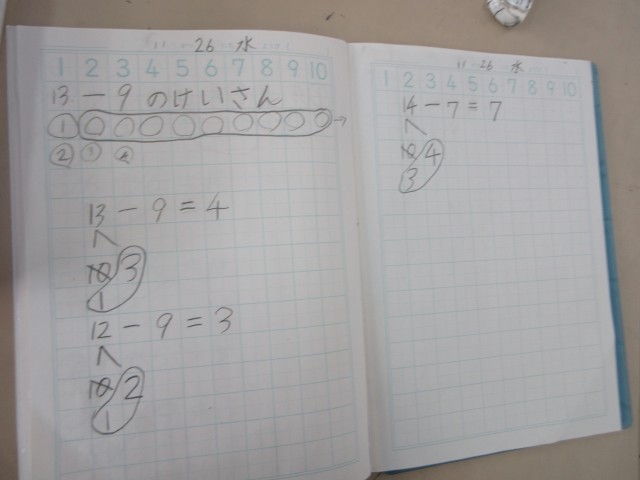 11 26 水
1 2 3 4 5 6 7 8 9 10
13 − 9 のけいさん
1
2 3 4
13 − 9 = 4
10 3
1
12 − 9 = 3
10 2
1
11 - 26 水
1 2 3 4 5 6 7 8 9 10
14 − 7 = 7
10 4
3